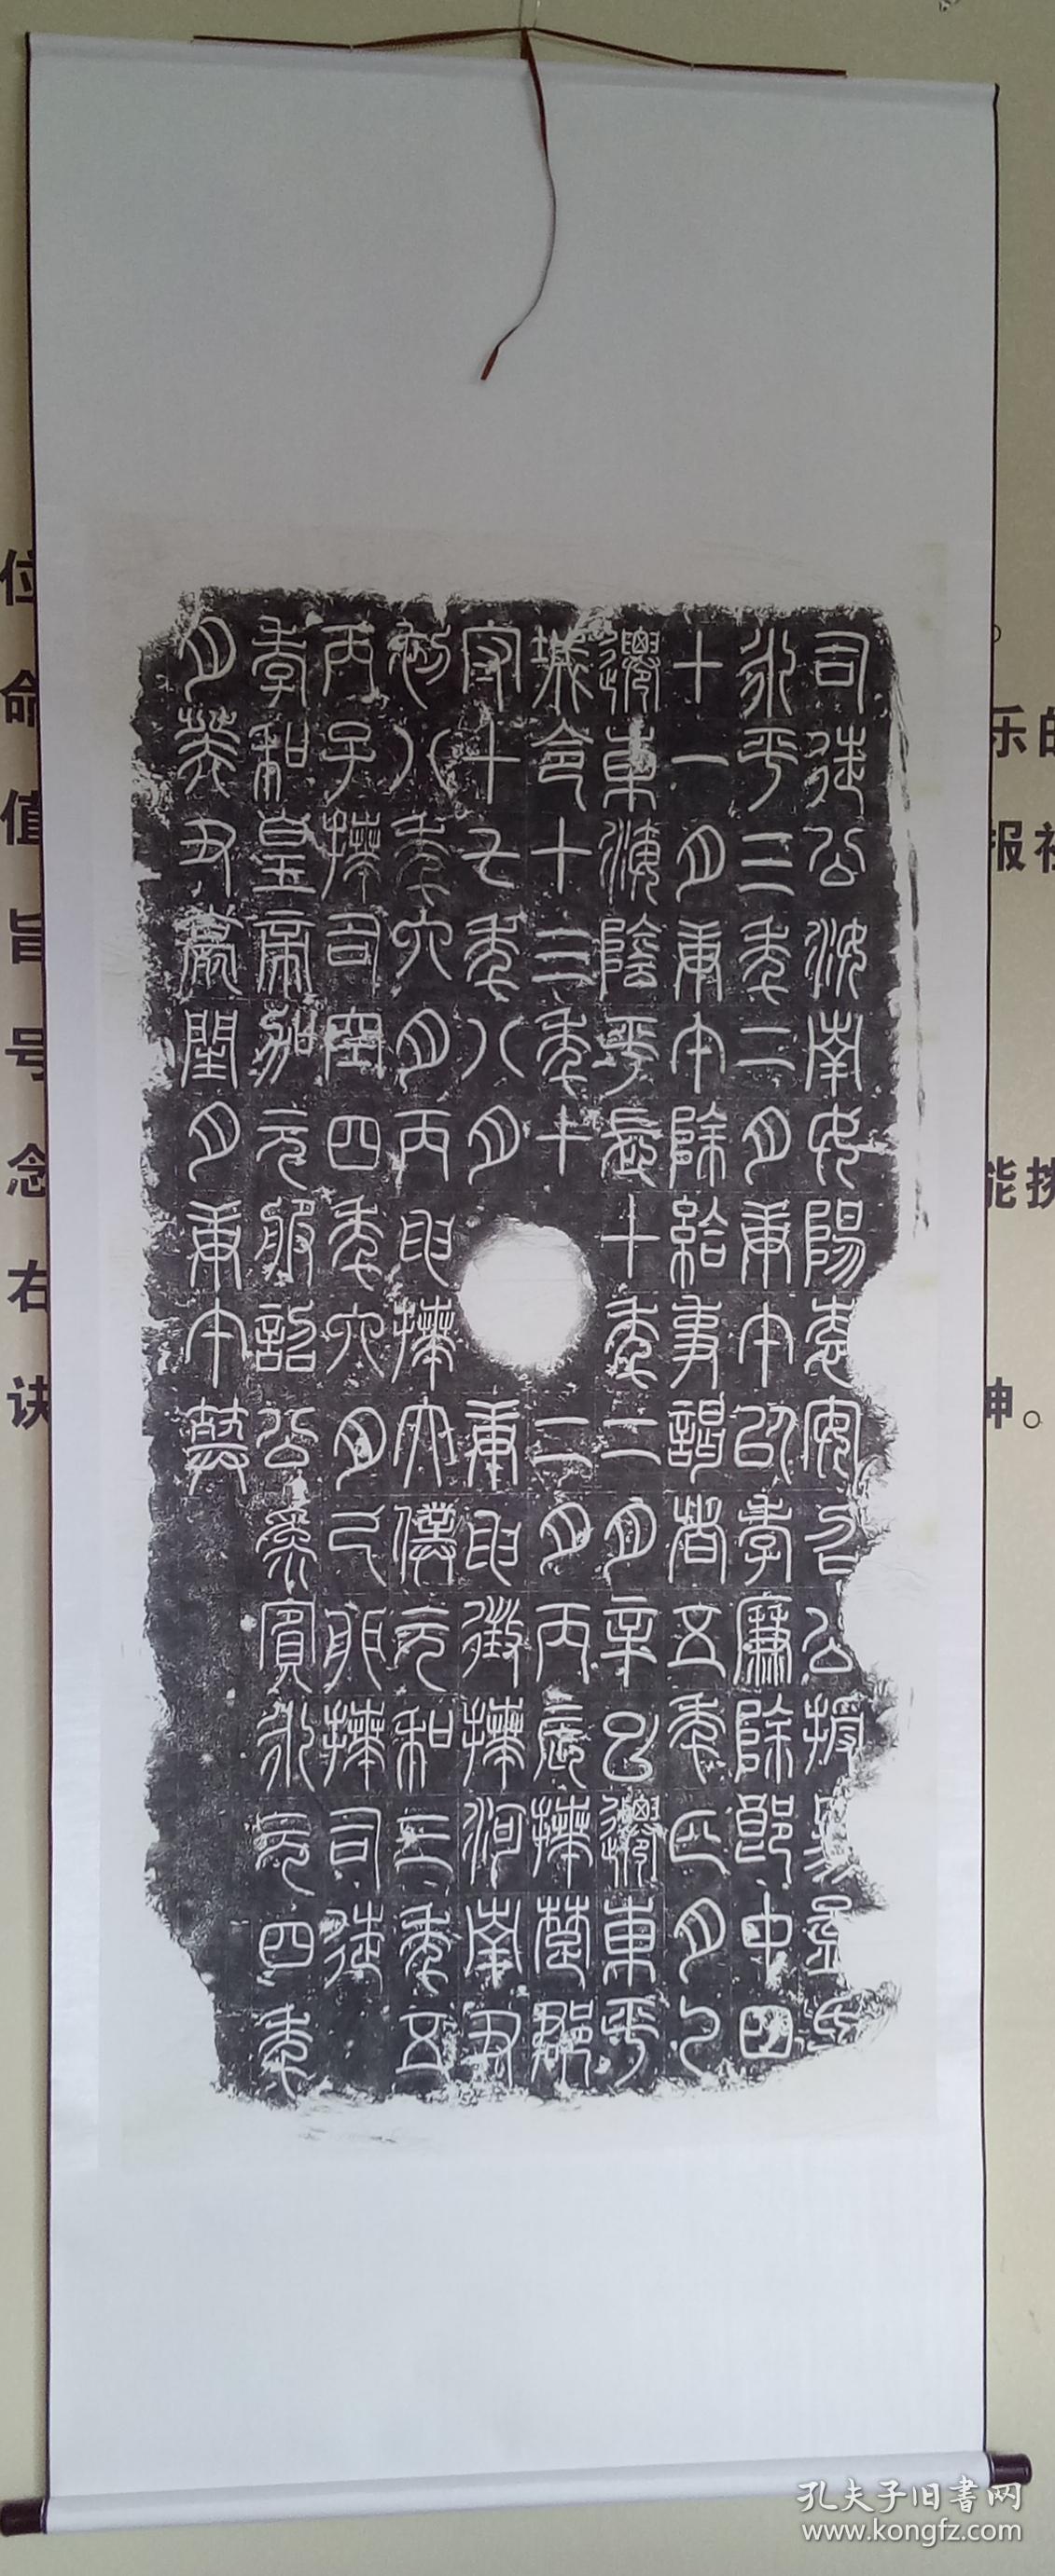 司徒公汝南女陽袁安召公授易孟氏
永平三年二月庚午以孝廉除郎中四
十一月庚午除給事謁者五年正月乙
遷東海陰平長十年二月辛巳遷東平
城令十三年十二月丙辰拜楚郡
守十七年八月庚申徵拜河南尹
初八年六月丙申拜太僕元和三年五
丙子拜司空四年六月己卯拜司徒
孝和皇帝加元服詔公為賓永元四年
月癸丑薨閏月庚午葬
孔夫子旧书网
www.kongfz.com